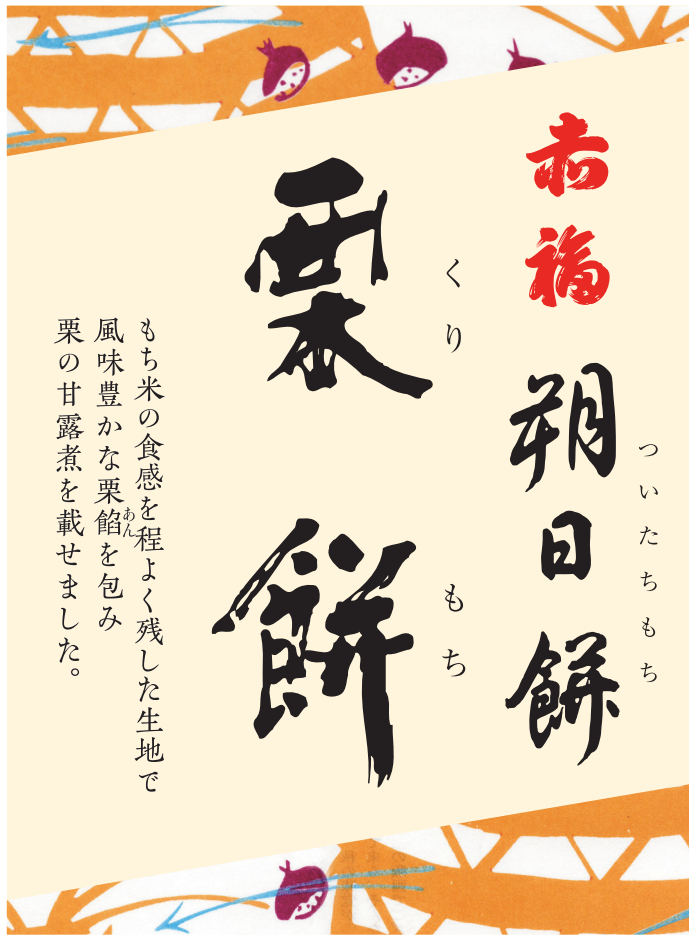 赤福
朔日餅
ついたちもち
栗餅
くりもち
もち米の食感を程よく残した生地で
風味豊かな栗餡を包み
あん
栗の甘露煮を載せました。